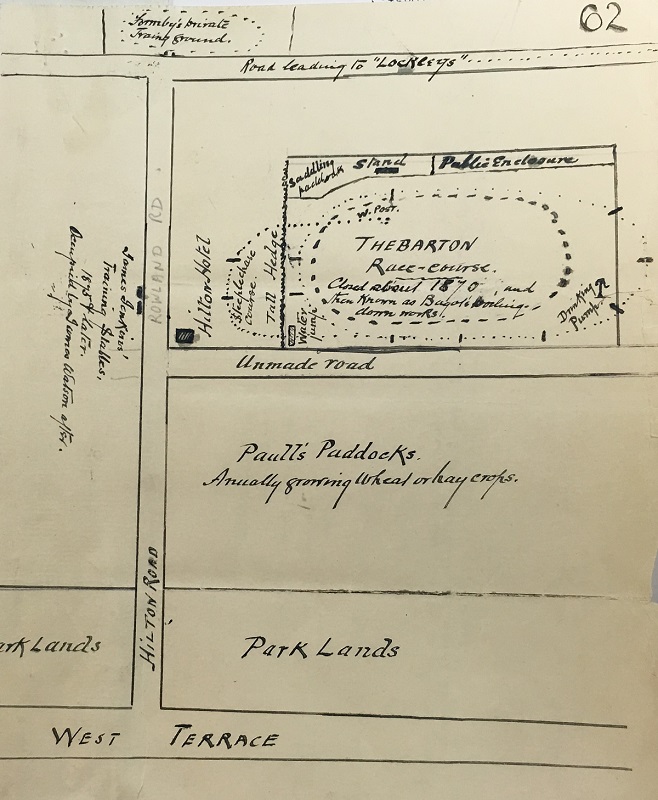 62
Formby's private
Traing ground.
Road leading to "LOCKLEYS"
Saddling
paddock
Stand
Public Enclosure
W. POST.
THEBARTON
Race-course.
Closed about 1870 and
then Known as Bagot's boiling-
down works.
Drinking
Pump.
Water
jump
Tall Hedge
Steeplechase
Course.
Hilton Hotel
ROWLAND RD
James Jenkins'
Training Stables,
1875 & later.
Occupied by James Watson after.
Unmade road
Paull's Paddocks.
Anually growing Wheat or hay crops.
HILTON ROAD
ark Lands
Park Lands
WEST TERRACE